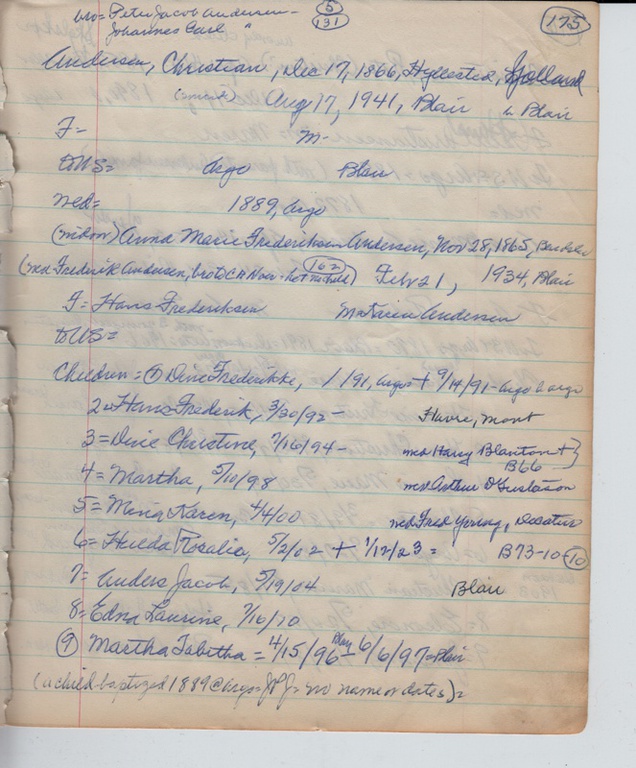 bro = Peter Jacob Andersen - 5 175
Johannes Carl " 131
Andersen, Christian, Dec 17, 1866, Hyllested, Jylland
(smith) Aug 17, 1941, Blair b Blair
F= M-
to US= Argo Blair
med= 1889, Argo
(widow) Anna Marie Frederiksen Andersen, Nov 28, 1865,
(md Frederik Andersen, bro to CA Nov = 162) Feb 21, 1934, Blair
F= Hans Frederiksen M= Andersen
to US=
Children = 1 Dine Frederikke, 1/91, Argo + 9/14/91 - Argo b Argo
2= Hans Frederik, 3/30/92 - Havre, Mont
3= Dine Christine, 7/16/94 - md Harry Blanton + }
B66
4= Martha, 5/10/98 md Arthur D Gustafson
5= Minia Karen, 4/4/00 md Fred Young, Decatur
6= Hulda Rosalia, 5/2/02 + 1/12/23 = B73-10 10
7= Anders Jacob, 5/19/04 Blair
8= Edna Laurine, 7/16/10
9 Martha Tabitha = 4/15/96 Blair - 6/6/97 = Blair
(a child baptized 1889 @ Argo = no name or dates) =